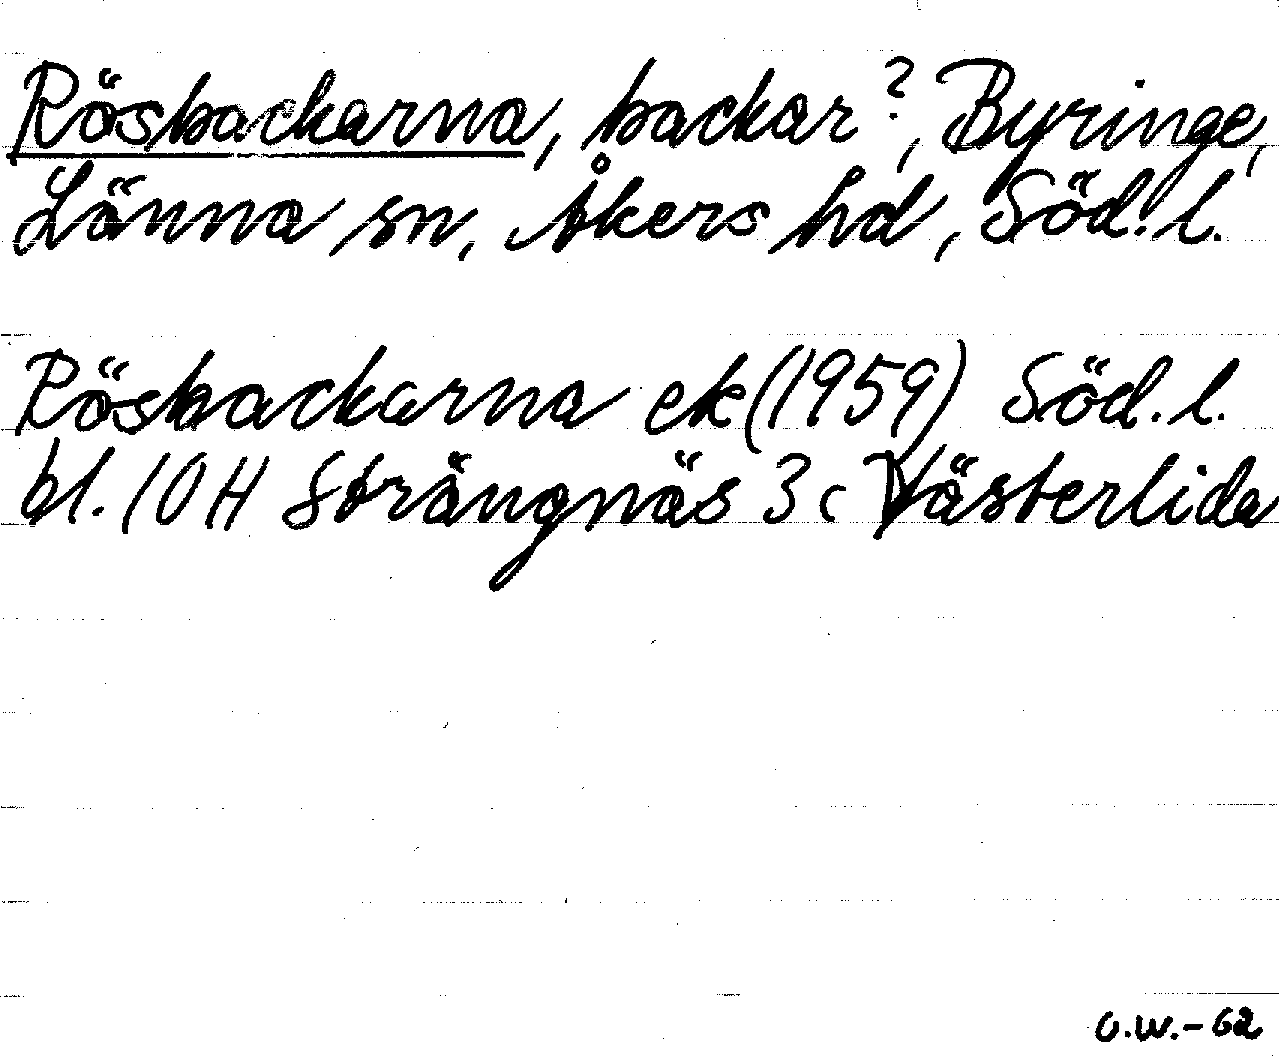 Rösbackarna, backar?, Byringe,
Länna sn, Åkers hd, Söd. l.
Rösbackarna ek (1959) Söd. l.
bl. 10 H Strängnäs 3 c Västerlida
O.W.-62